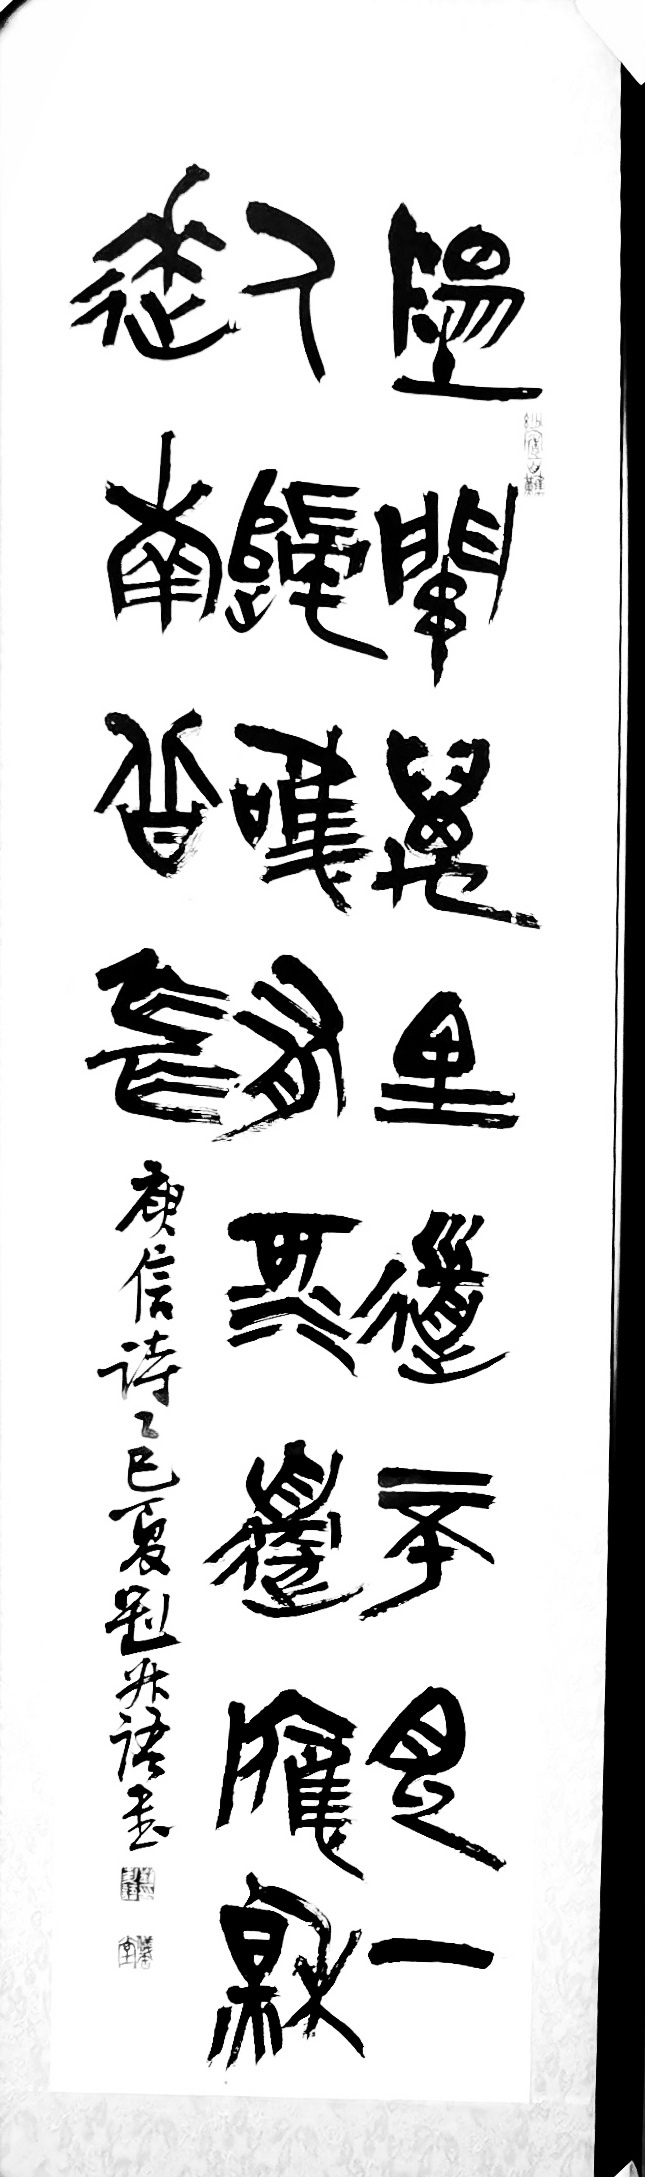 陽關萬里道不見一
人歸唯有河邊雁秋
來南向飛
庾信詩乙巳夏
語書